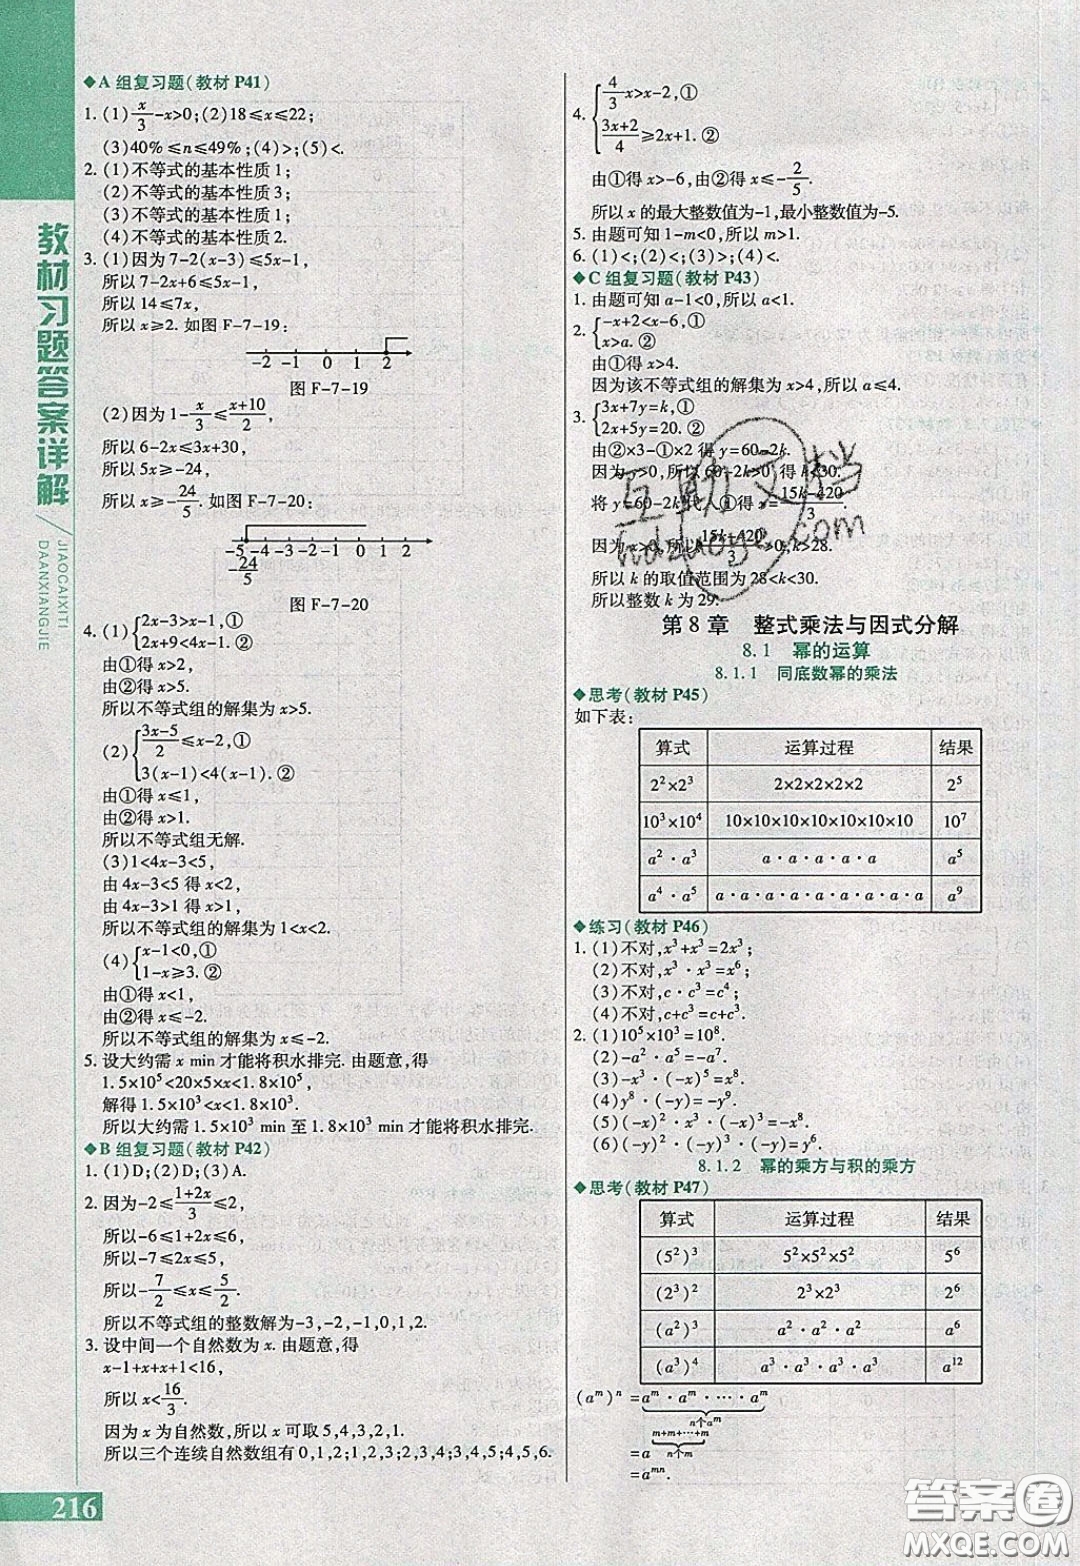 教材习题答案详解
JIAOCAIXITI
DAANXIANGJIE
◆A 组复习题(教材 P41)
1. (1) x/3-x>0;(2)18≤x≤22;
(3)40%≤n≤49%;(4)>;(5)<.
2. (1)不等式的基本性质1;
(2)不等式的基本性质3;
(3)不等式的基本性质1;
(4)不等式的基本性质2.
3. (1)因为7-2(x-3)≤5x-1,
所以7-2x+6≤5x-1,
所以14≤7x,
所以x≥2. 如图 F-7-19:
-2 -1 0 1 2
图 F-7-19
(2)因为1-x/3≤(x+10)/2,
所以6-2x≤3x+30,
所以5x≥-24,
所以x≥-24/5. 如图 F-7-20:
-5 -4 -3 -2 -1 0 1 2
-24/5
图 F-7-20
4. (1){2x-3>x-1,①
2x+9<4x-1.②
由①得x>2,
由②得x>5.
所以不等式组的解集为x>5.
(2){(3x-5)/2≤x-2,①
3(x-1)<4(x-1).②
由①得x≤1,
由②得x>1.
所以不等式组无解.
(3)1<4x-3<5,
由4x-3<5得x<2,
由4x-3>1得x>1,
所以不等式组的解集为1<x<2.
(4){x-1<0,①
1-x≥3.②
由①得x<1,
由②得x≤-2.
所以不等式组的解集为x≤-2.
5. 设大约需 x min 才能将积水排完. 由题意,得
1.5×10⁵<20×5×x<1.8×10⁵.
解得1.5×10³<x<1.8×10³.
所以大约需1.5×10³ min 至1.8×10³ min 才能将积水排完.
◆B 组复习题(教材 P42)
1. (1)D;(2)D;(3)A.
2. 因为-2≤(1+2x)/3≤2,
所以-6≤1+2x≤6,
所以-7≤2x≤5,
所以-7/2≤x≤5/2.
所以不等式组的整数解为-3,-2,-1,0,1,2.
3. 设中间一个自然数为x. 由题意,得
x-1+x+x+1<16,
所以x<16/3.
因为x为自然数,所以x可取5,4,3,2,1.
所以三个连续自然数组有0,1,2;1,2,3;2,3,4;3,4,5;4,5,6.
216
4. {4/3x>x-2,①
(3x+2)/4≥2x+1.②
由①得x>-6,由②得x≤-2/5.
所以x的最大整数值为-1,最小整数值为-5.
5. 由题可知1-m<0,所以m>1.
6. (1)<;(2)<;(3)>;(4)<.
◆C 组复习题(教材 P43)
1. 由题可知a-1<0,所以a<1.
2. {-x+2<x-6,①
x>a.②
由①得x>4.
因为该不等式组的解集为x>4,所以a≤4.
3. {3x+7y=k,①
2x+5y=20.②
由②×3-①×2得y=60-2k.
因为y>0,所以60-2k>0,得k<30.
将y=60-2k代入①得x=(15k-420)/3.
因为x>0,所以(15k-420)/3>0,k>28.
所以k的取值范围为28<k<30.
所以整数k为29.
第8章 整式乘法与因式分解
8.1 幂的运算
8.1.1 同底数幂的乘法
◆思考(教材 P45)
如下表:
算式 运算过程 结果
2²×2³ 2×2×2×2×2 2⁵
10³×10⁴ 10×10×10×10×10×10×10 10⁷
a²·a³ a·a·a·a·a a⁵
a⁴·a⁵ a·a·a·a·a·a·a·a·a a⁹
◆练习(教材 P46)
1. (1)不对,x³+x³=2x³;
(2)不对,x³·x³=x⁶;
(3)不对,c·c³=c⁴;
(4)不对,c+c³=c+c³.
2. (1)10⁵×10³=10⁸.
(2)-a²·a⁵=-a⁷.
(3)-x³·(-x)³=x⁶.
(4)y⁸·(-y)=-y⁹.
(5)(-x)·x³·(-x)²=-x⁶.
(6)(-y)²·(-y)³·(-y)=y⁶.
8.1.2 幂的乘方与积的乘方
◆思考(教材 P47)
算式 运算过程 结果
(5²)³ 5²×5²×5² 5⁶
(2³)² 2³×2³ 2⁶
(a²)³ a²·a²·a² a⁶
(a³)⁴ a³·a³·a³·a³ a¹²
(aᵐ)ⁿ =aᵐ·aᵐ·…·aᵐ
n个aᵐ
=a^(m+m+…+m)
n个m
=aᵐⁿ.
互助文档
hdzuoye.com
答案圈
MXQE.COM